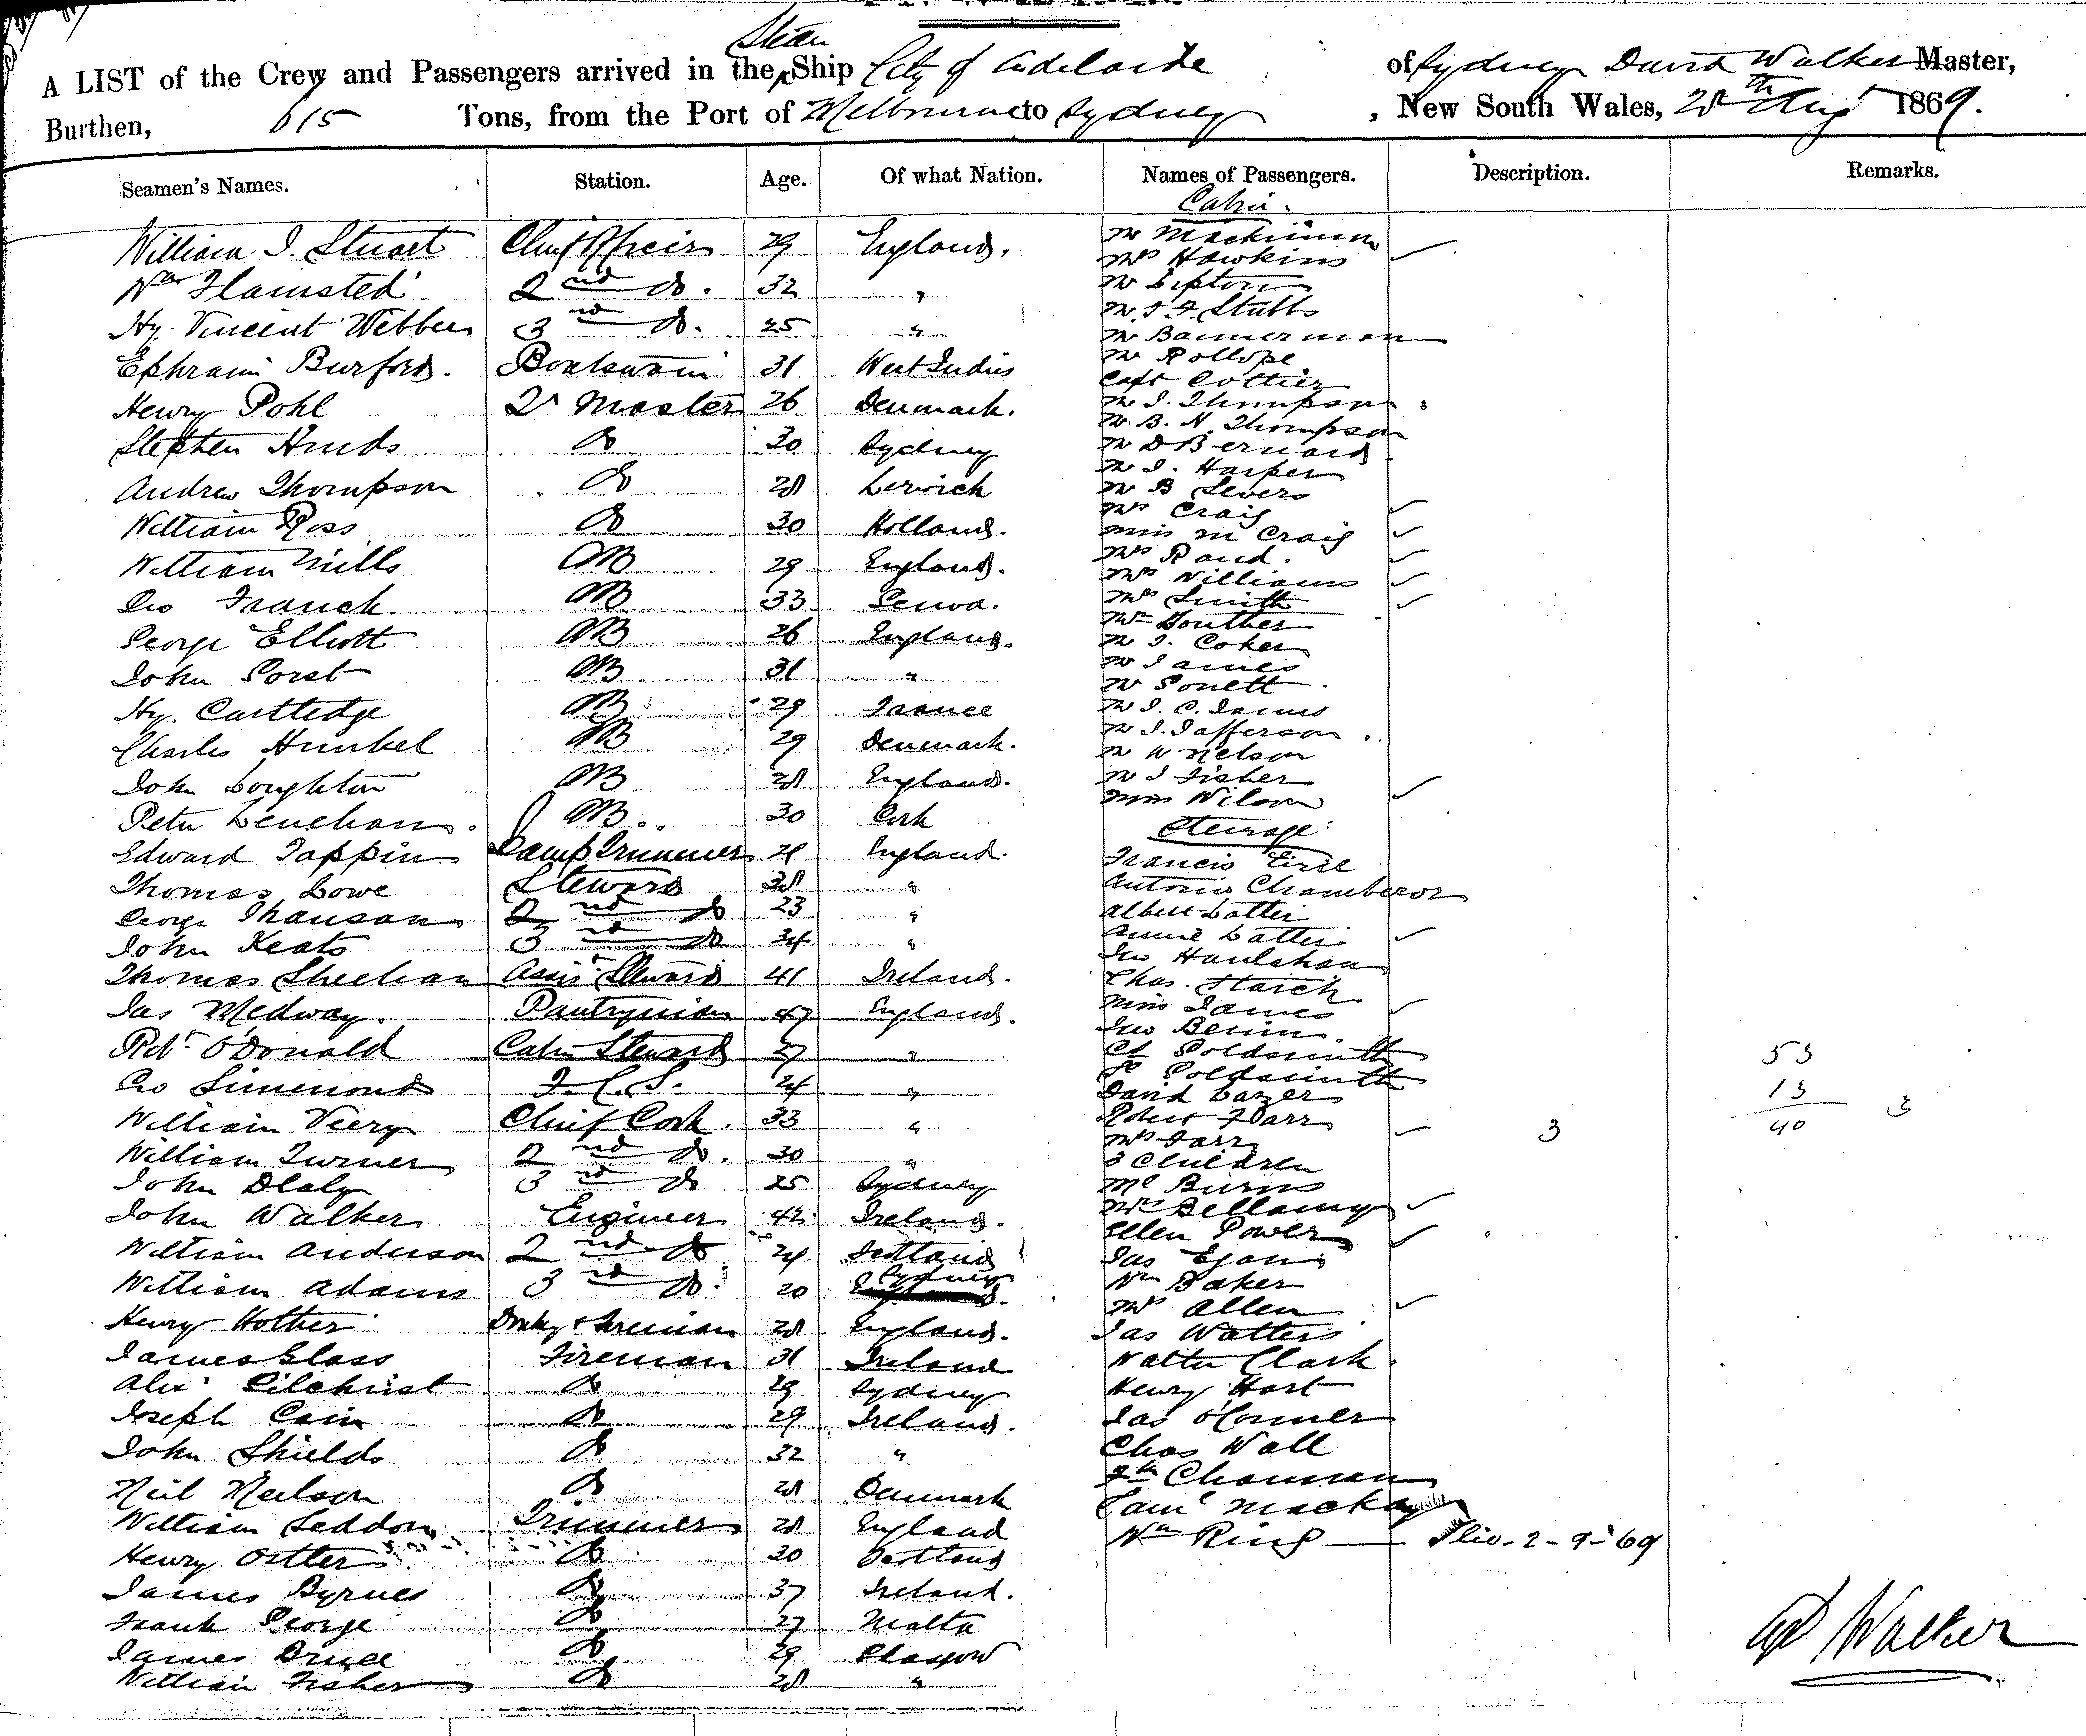 Steam
A LIST of the Crew and Passengers arrived in the Ship City of Adelaide of Sydney David Walker Master,
Burthen, 615 Tons, from the Port of Melbourne to Sydney, New South Wales, 28th Aug 1869.
Seamen's Names. Station. Age. Of what Nation. Names of Passengers. Description. Remarks.
Cabin.
William J. Stuart Chief Officer 29 England. Mr Mackinnon
Mrs Hawkins
Wm Flamsted 2nd Do. 32 " Mr Lipton
Mr J. F. Stubbs
Hy. Vincent Webber 3rd Do. 25 " Mr Bannerman
Ephraim Burford. Boatswain 31 West Indies Mr Rollope
Capt Cottier
Henry Pohl Qr Master 26 Denmark. Mr J. Thompson
Mr B. H. Thompson
Stephen Hinds Do 30 Sydney Mr D Bernard
Mr J. Harper
Andrew Thompson Do 28 Lerwick Mr B Levers
Mrs Craig
William Ross Do 30 Holland. Miss M Craig
William Mills AB 29 England. Mrs Rand.
Mrs Williams
Geo Franck AB 33 Genoa. Mrs Smith
Mr Douther
George Elliott AB 26 England. Mr J. Coker
Mr James
John Forst AB 31 " Mr Sonett
Hy. Carttedge AB 29 France Mr J. C. James
Mr J. Jafferson
Charles Hunkel AB 29 Denmark. Mr W Nelson
John Loughton AB 28 England. Mr J Fisher
Miss Wilson
Peter Lenehan AB 30 Cork
Steerage
Edward Tappin Lamp Trimmer 28 England. Francis
Thomas Lowe Steward 38 " Antonio
George 2nd Do 23 " Albert Lattie
John Keats 3rd Do 24 " Annie Lattie
Jno Hanlahan
Thomas Sheehan Assist Steward 41 Ireland. Chas.
Jas Medway. Pantryman 47 England. Miss James
Jno
Robt O'Donald Cabin Steward 27 " Ct Goldsmith
Goldsmith 53
Geo Simmonds F. C. S. 24 " David Lazer 13
William Veery Chief Cook. 33 " Robert Farr
Mrs Farr 3 40 3
William Turner 2nd Do. 30 " 3 Children
John Dealy 3rd Do 25 Sydney Mc Burns
John Walker Engineer 42 Ireland. Mrs Bellamy
Ellen Power
William Anderson 2nd Do 24 Scotland Jas Egan
William Adams 3rd Do. 20 Sydney Wm Baker
Mrs Allen
Henry Hother Donky & Fireman 28 England. Jas Watters
James Glass Fireman 31 Ireland Walter Clark
Alexr Gilchrist Do 29 Sydney Henry Hart
Joseph Cain Do 29 Ireland. Jas O'Conner
John Shields Do 32 " Chas Wall
Neil Neilson Do 28 Denmark Chapman
William Seddon Trimmer 28 England Saml Mackay
Wm Ring 2-9-69
Henry Ostler Do 30 Scotland
James Byrnes Do 37 Ireland.
Frank George Do 27 Malta
James Bruce Do 29 Glasgow
William Fisher Do 28 "
Walker